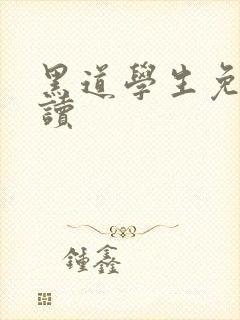 黑道學生免
讀
鍾鑫